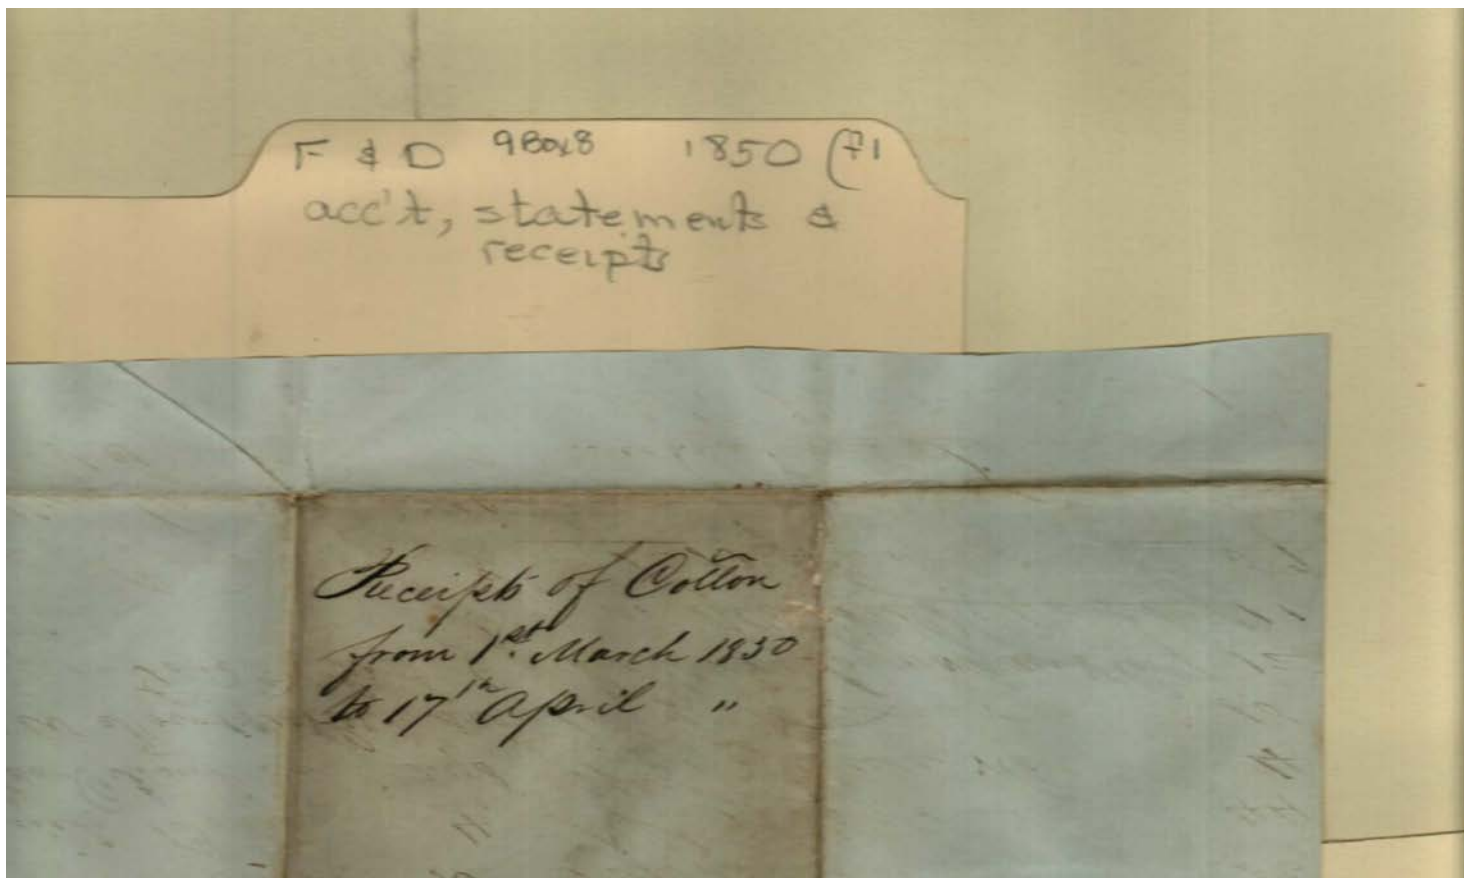 F & D 9Box8 1850 (f1
acc't, statements &
receipts
Receipts of Cotton
from 1st. March 1850
to 17th April "